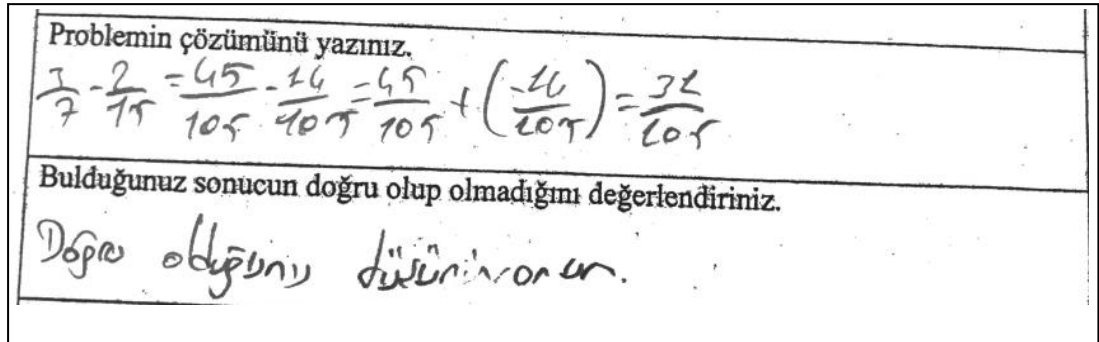 Problemin çözümünü yazınız.
3/7 - 2/15 = 45/105 - 14/105 = 45/105 + (-14/105) = 31/105
Bulduğunuz sonucun doğru olup olmadığını değerlendiriniz.
Doğru olduğunu düşünüyorum.